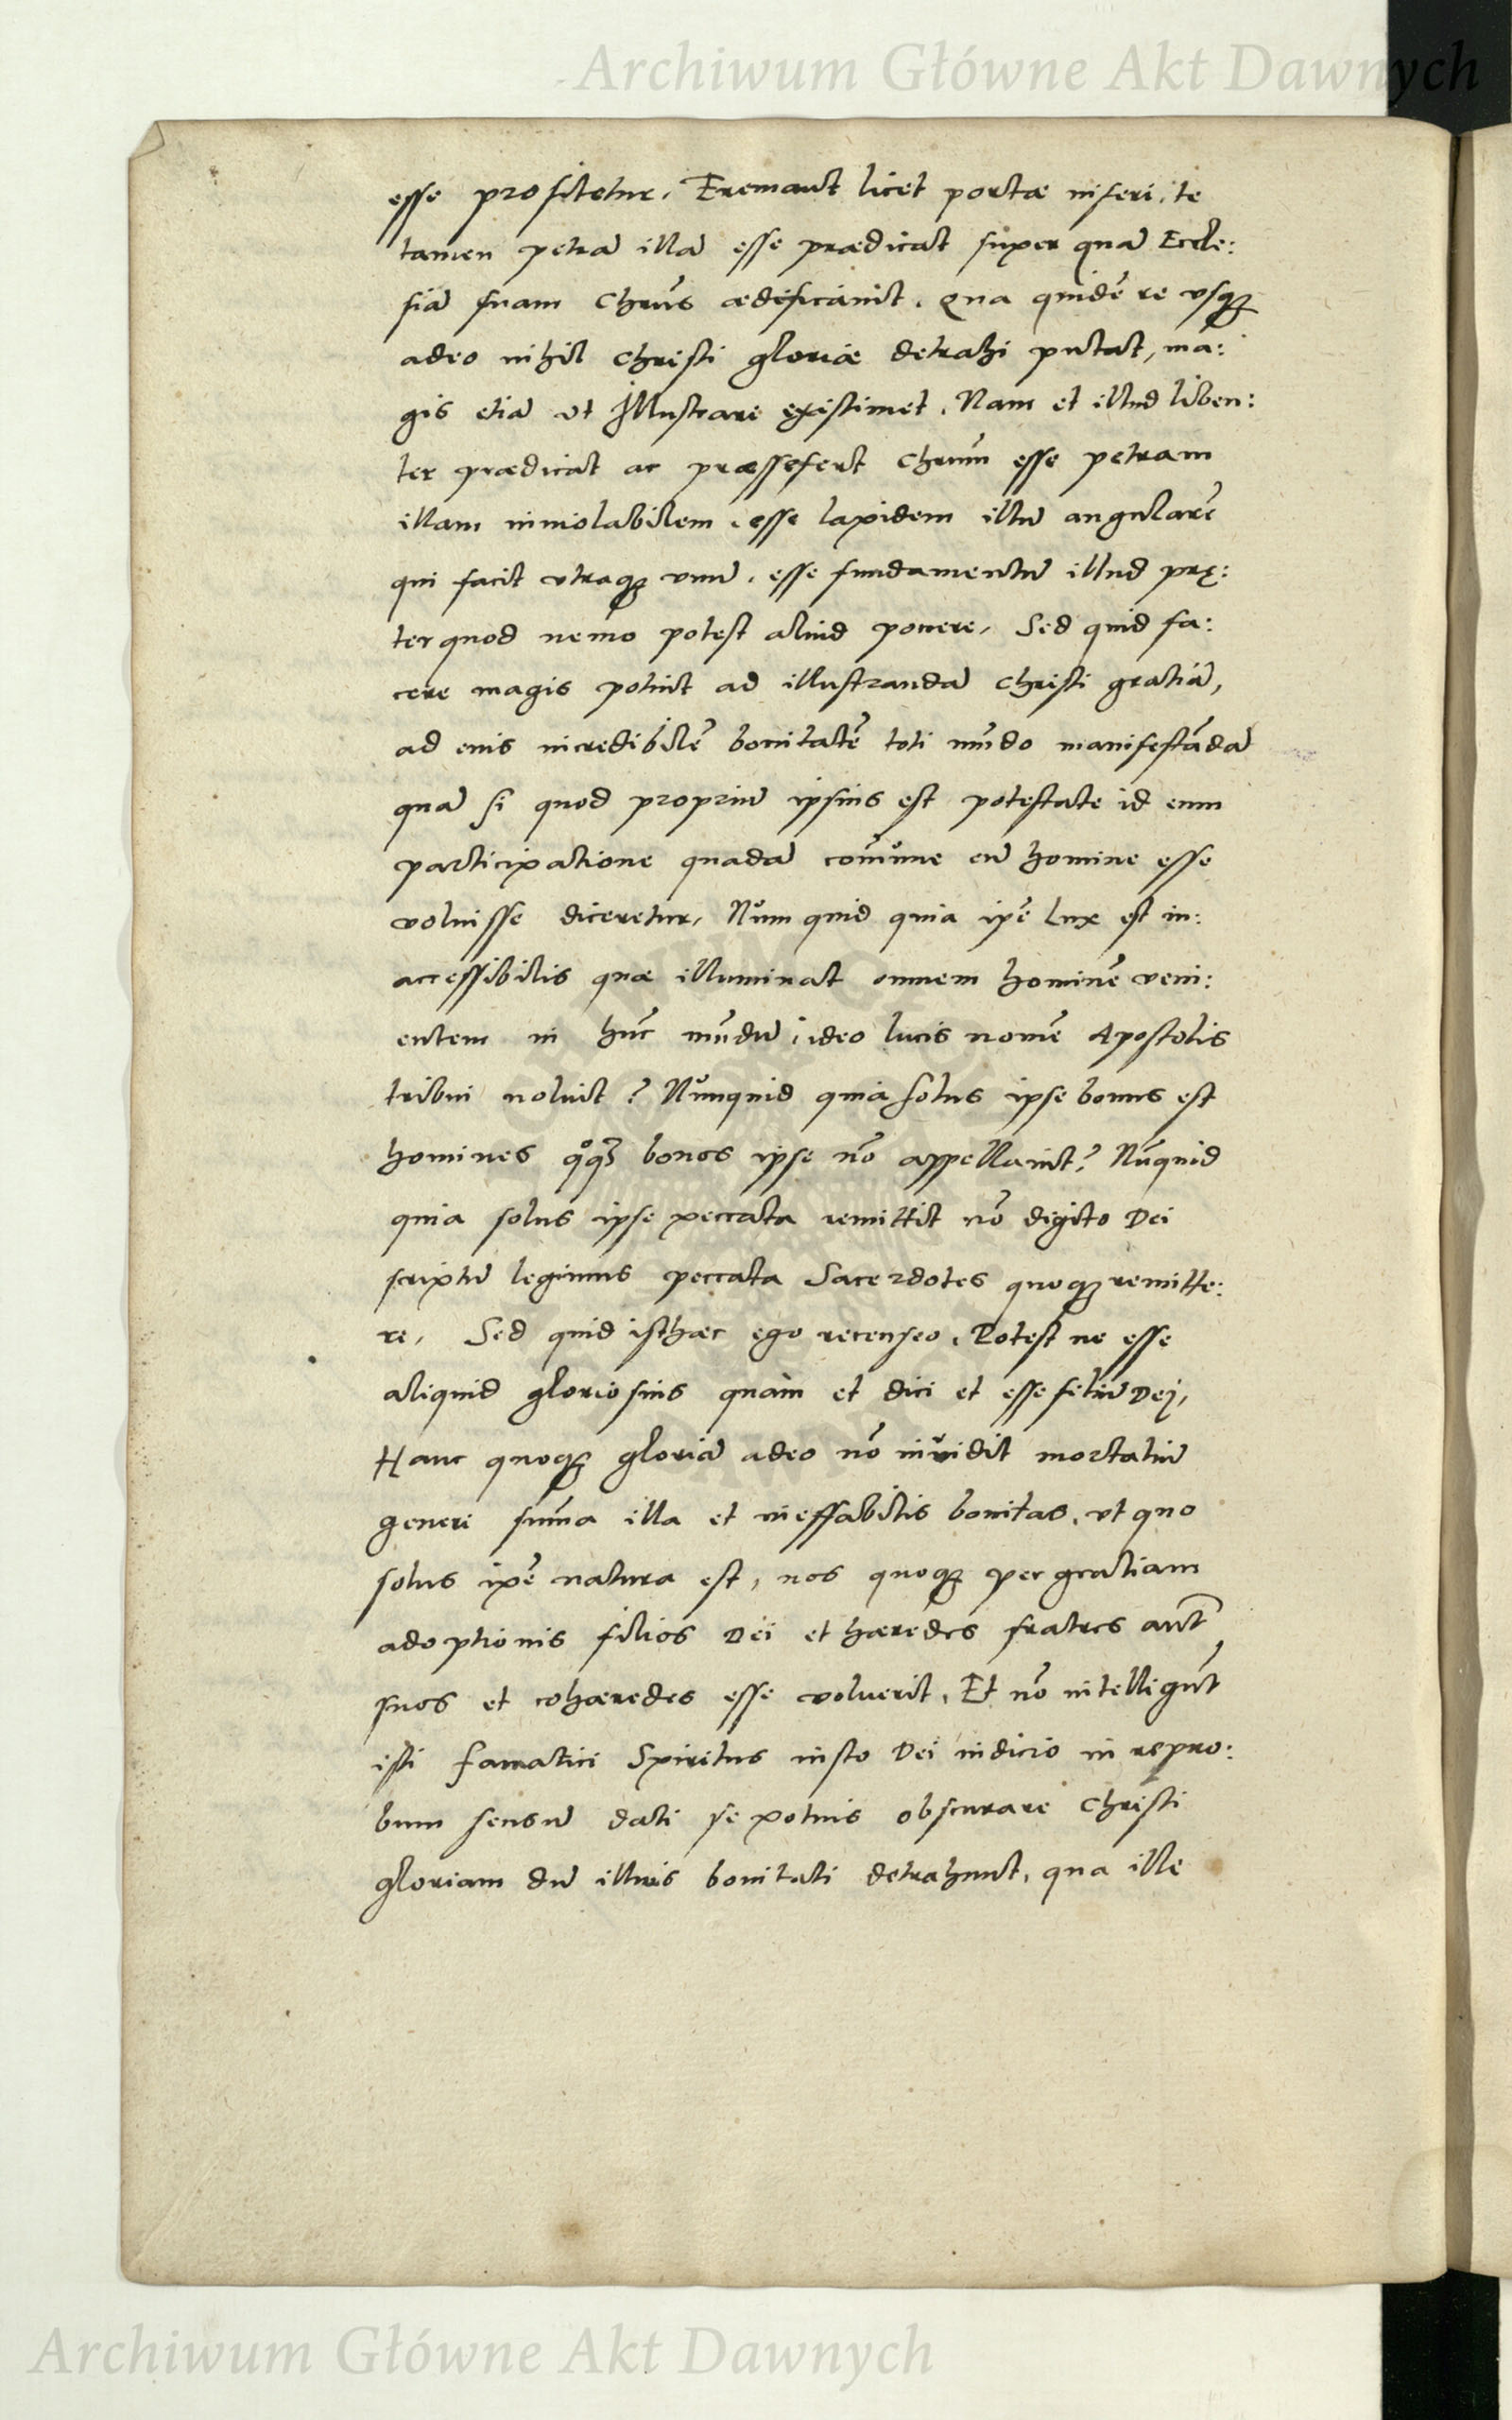 Archiwum Główne Akt Dawnych
esse profitetur. Fremant licet portæ inferi, te
tamen petrā illā esse prædicat super quā Eccle:
siā suam Chrūs ædificauit. Qua quidē re vsq;
adeo nihil Christi gloriæ detrahi putat, ma:
gis etiā vt Illustrare existimet. Nam et illud liben:
ter prædicat ac præssefert Chrūm esse petram
illam inuiolabilem, esse lapidem illū angularē
qui facit vtraq; vnū, esse fundamentū illud prę:
ter quod nemo potest aliud ponere. Sed quid fa:
cere magis potuit ad illustrandā Christi gratiā,
ad eius incredibilē bonitatē toti mūdo manifestādā
quā si quod propriū ipsius est potestate id eum
participatione quadā com̄une cū homine esse
voluisse diceretur. Num quid quia ipē Lux est in:
accessibilis quæ illuminat omnem hominē veni:
entem in hūc mūdū, ideo lucis nomē Apostolis
tribui noluit? Nunquid quia solus ipse bonus est
homines qͦq; bonos ipse nō appellauit? Nūquid
quia solus ipse peccata remittit nō digito Dei
scriptū legimus peccata Sacerdotes quoq; remitte:
re. Sed quid isthæc ego recenseo. Potest ne esse
aliquid gloriosius quàm et dici et esse filiū Dej,
Hanc quoq; gloriā adeo nō inuidit mortaliū
generi sum̄a illa et ineffabilis bonitas, vt quo
solus ipē natura est, nos quoq; per gratiam
adoptionis filios Dei et hæredes fratres aūt
suos et cohæredes esse voluerit. Et nō intelligūt
isti fanatici Spiritus iusto Dei iudicio in repro:
bum sensū dati se potius obscurare Christi
gloriam dū illius bonitati detrahunt, qua ille
Archiwum Główne Akt Dawnych